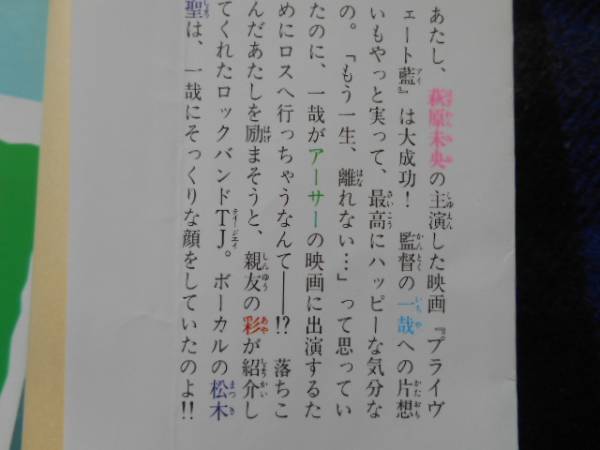 あたし、萩原未央の主演した映画『プライヴ
ェート藍』は大成功！　監督の一哉への片想
いもやっと実って、最高にハッピーな気分な
の。「もう一生、離れない…」って思ってい
たのに、一哉がアーサーの映画に出演するた
めにロスへ行っちゃうなんて――!?　落ちこ
んだあたしを励まそうと、親友の彩が紹介し
てくれたロックバンドTJ。ボーカルの松木
聖は、一哉にそっくりな顔をしていたのよ!!